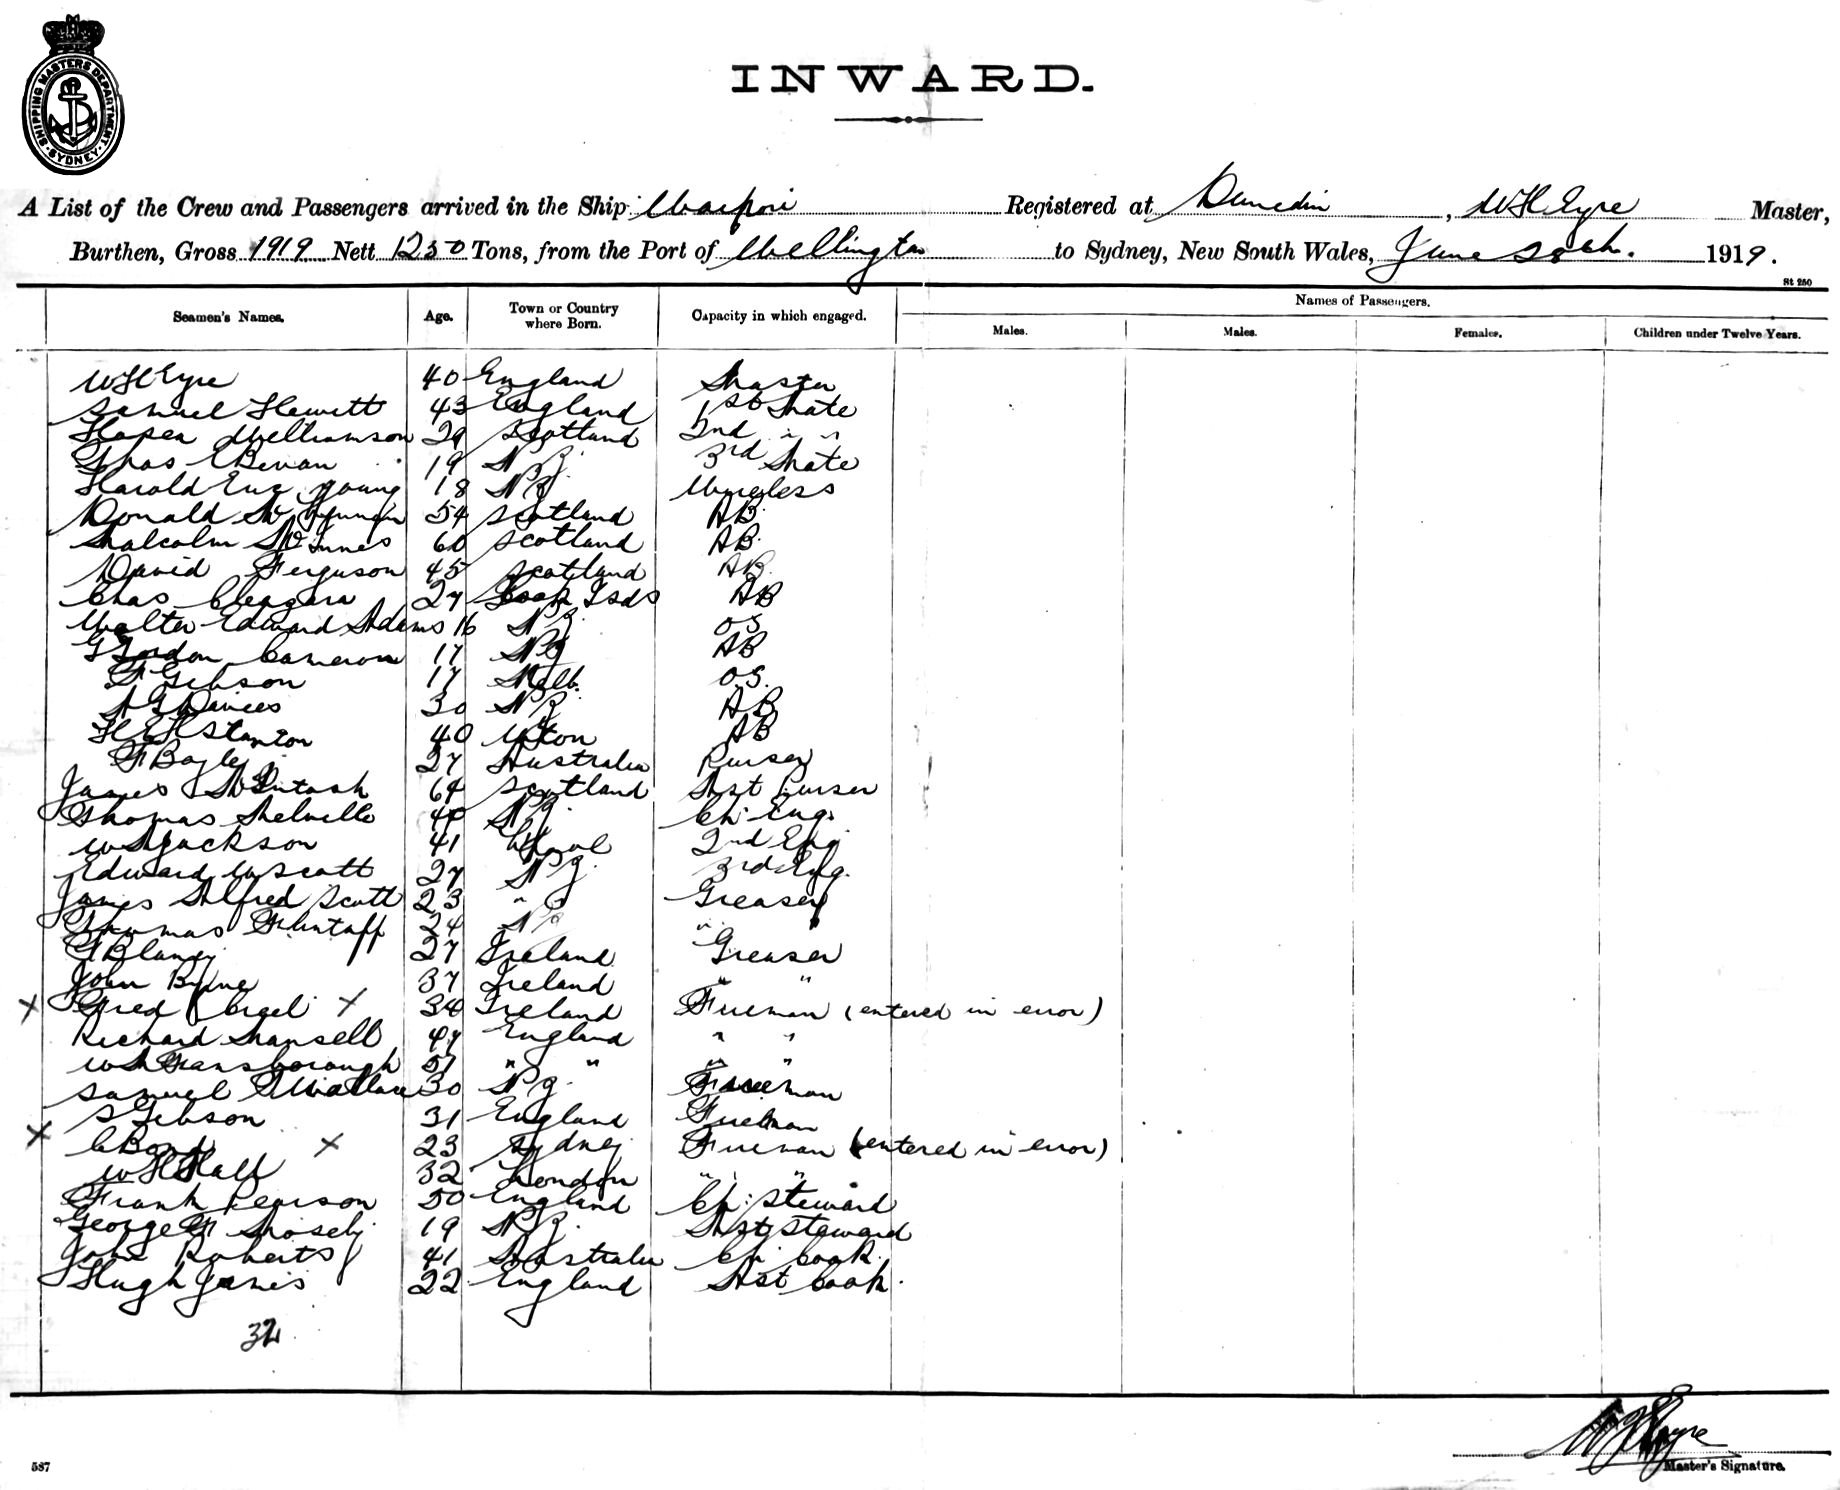 SHIPPING MASTERS DEPARTMENT
SYDNEY
INWARD.
A List of the Crew and Passengers arrived in the Ship Waipori Registered at Dunedin, W H Eyre Master,
Burthen, Gross 1919 Nett 1230 Tons, from the Port of Wellington to Sydney, New South Wales, June 28th. 1919.
St 250
Seamen's Names. Age. Town or Country where Born. Capacity in which engaged. Names of Passengers.
Males. Males. Females. Children under Twelve Years.
W H Eyre 40 England Master
Samuel Hewitt 43 England 1st Mate
Williamson 29 Scotland 2nd " "
Chas E Bevan 19 N Z 3rd Mate
Harold Eric Young 18 N Z Wireless
Donald 54 Scotland AB
Malcolm McInnes 60 Scotland AB.
David Ferguson 45 Scotland AB
Chas 27 Cook Isds AB
Walter Edward Adams 16 N Z OS
Gordon Cameron 17 N Z AB
F Gibson 17 Melb. O.S.
A G Davies 30 N Z AB
H E H Stanton 40 AB
F Bayley 27 Australia Purser
James McIntosh 64 Scotland Asst Purser
Thomas Melville 40 N Z. Ch Eng.
W Jackson 41 2nd Eng
Edward W Scott 27 N Z. 3rd Eng.
James Alfred Scott 23 " Greaser
Thomas Flintaff 24 N Z "
Blaney 27 Ireland Greaser
John Byrne 37 Ireland " "
x Fred Cargel x 34 Ireland Fireman (entered in error)
Richard Mansell 47 England " "
W Gainsborough 51 " " " "
Samuel G Wallace 30 N Z Fireman
S Gibson 31 England Fireman
x C Bond x 23 Sydney Fireman (entered in error)
W H Hall 32 London " "
Frank Pearson 50 England Ch: Steward
George F Mosely 19 N Z. Asst Steward
John Roberts 41 Australia Ch Cook.
Hugh Janis 22 England Asst Cook.
32
W H Eyre
Master's Signature.
587